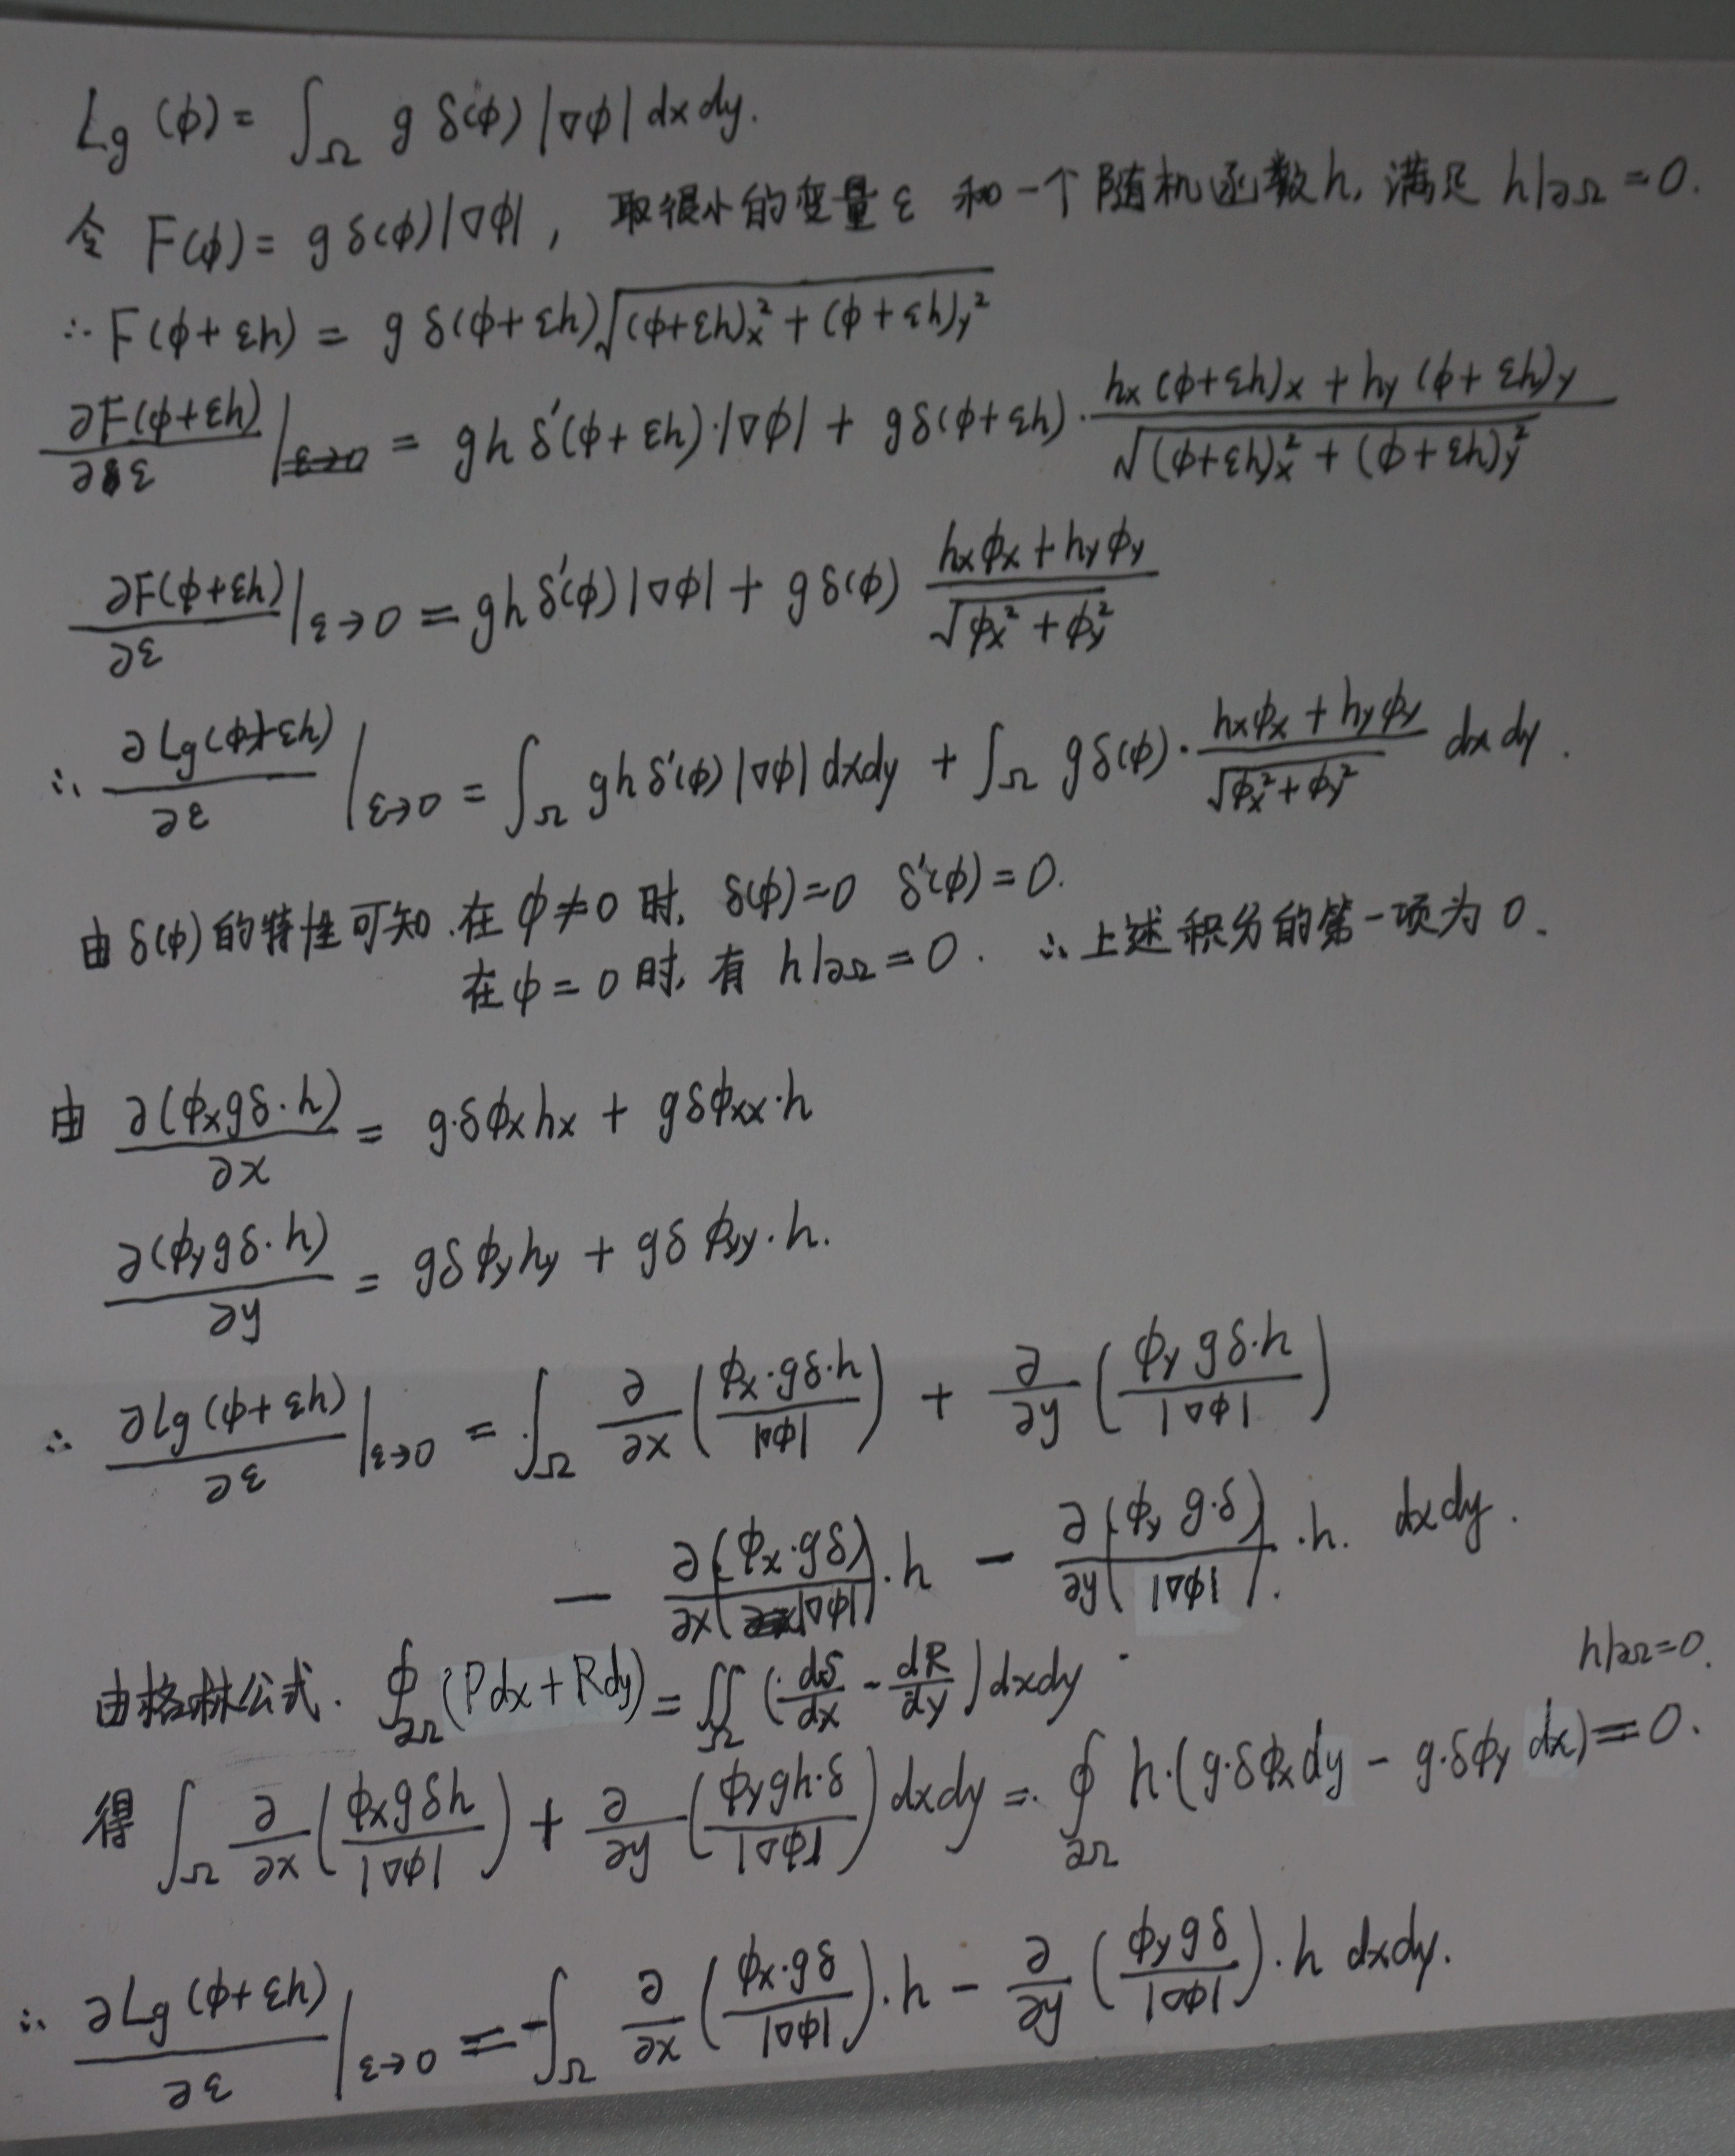 Lg (ϕ) = ∫_Ω g δ(ϕ) |∇ϕ| dx dy.
令 F(ϕ) = g δ(ϕ)|∇ϕ|, 取很小的变量 ε 和一个随机函数 h, 满足 h|∂Ω = 0.
∴ F(ϕ+εh) = g δ(ϕ+εh) √((ϕ+εh)x² + (ϕ+εh)y²)
∂F(ϕ+εh)/∂ε | = gh δ'(ϕ+εh)·|∇ϕ| + gδ(ϕ+εh)· (hx(ϕ+εh)x + hy(ϕ+εh)y)/√((ϕ+εh)x² + (ϕ+εh)y²)
∂F(ϕ+εh)/∂ε |ε→0 = gh δ'(ϕ)|∇ϕ| + gδ(ϕ) (hxϕx + hyϕy)/√(ϕx² + ϕy²)
∴ ∂Lg(ϕ+εh)/∂ε |ε→0 = ∫_Ω gh δ'(ϕ)|∇ϕ| dxdy + ∫_Ω gδ(ϕ)· (hxϕx + hyϕy)/√(ϕx² + ϕy²) dx dy.
由 δ(ϕ) 的特性可知. 在 ϕ≠0 时, δ(ϕ)=0 δ'(ϕ)=0.
在 ϕ=0 时, 有 h|∂Ω=0. ∴ 上述积分的第一项为 0.
由 ∂(ϕxgδ·h)/∂x = g·δϕxhx + gδϕxx·h
∂(ϕygδ·h)/∂y = gδϕyhy + gδϕyy·h.
∴ ∂Lg(ϕ+εh)/∂ε |ε→0 = ∫_Ω ∂/∂x (ϕx·gδ·h/|∇ϕ|) + ∂/∂y (ϕygδ·h/|∇ϕ|)
− ∂/∂x(ϕx·gδ/|∇ϕ|)·h − ∂/∂y(ϕy g·δ/|∇ϕ|)·h. dxdy.
由格林公式. ∮_∂Ω (Pdx+Rdy) = ∬_Ω (dS/dx − dR/dy) dxdy
h|∂Ω=0.
得 ∫_Ω ∂/∂x (ϕxgδh/|∇ϕ|) + ∂/∂y (ϕygh·δ/|∇ϕ|) dxdy = ∮_∂Ω h·(g·δϕxdy − g·δϕy dx) = 0.
∴ ∂Lg(ϕ+εh)/∂ε |ε→0 = −∫_Ω ∂/∂x (ϕx·gδ/|∇ϕ|)·h − ∂/∂y (ϕygδ/|∇ϕ|)·h dxdy.